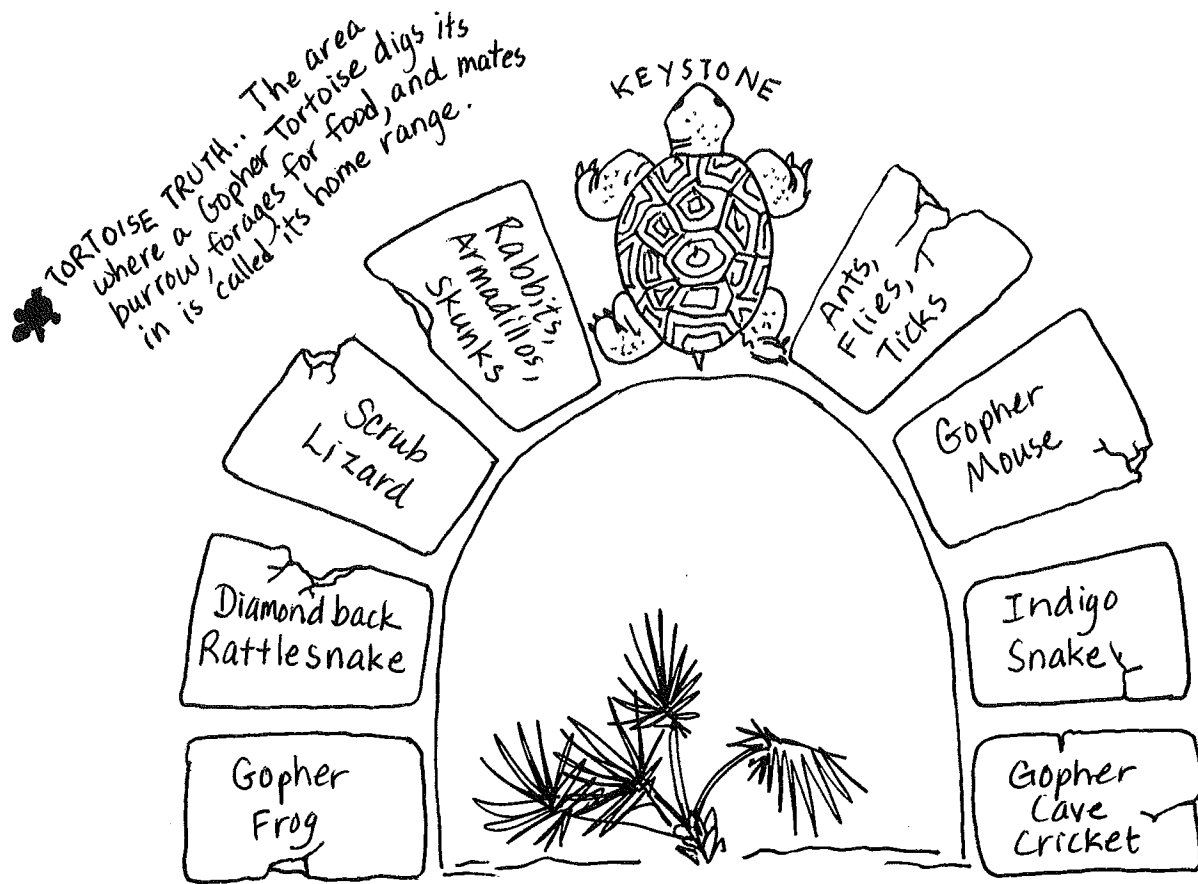 TORTOISE TRUTH.. The area
where a Gopher Tortoise digs its
burrow, forages for food, and mates
in is called its home range.
KEYSTONE
Rabbits,
Armadillos,
Skunks
Ants,
Flies,
Ticks
Scrub
Lizard
Gopher
Mouse
Diamondback
Rattlesnake
Indigo
Snake
Gopher
Frog
Gopher
Cave
Cricket